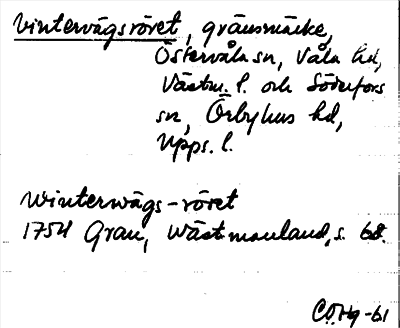 Vintervägsröret, gränsmärke,
Östervåla sn, Våla hd,
Västm. l. och Söderfors
sn, Örbyhus hd,
Upps. l.
Winterwägs-röret
1754 Grau, Wästmanland, s. 68.
CÖHg-61